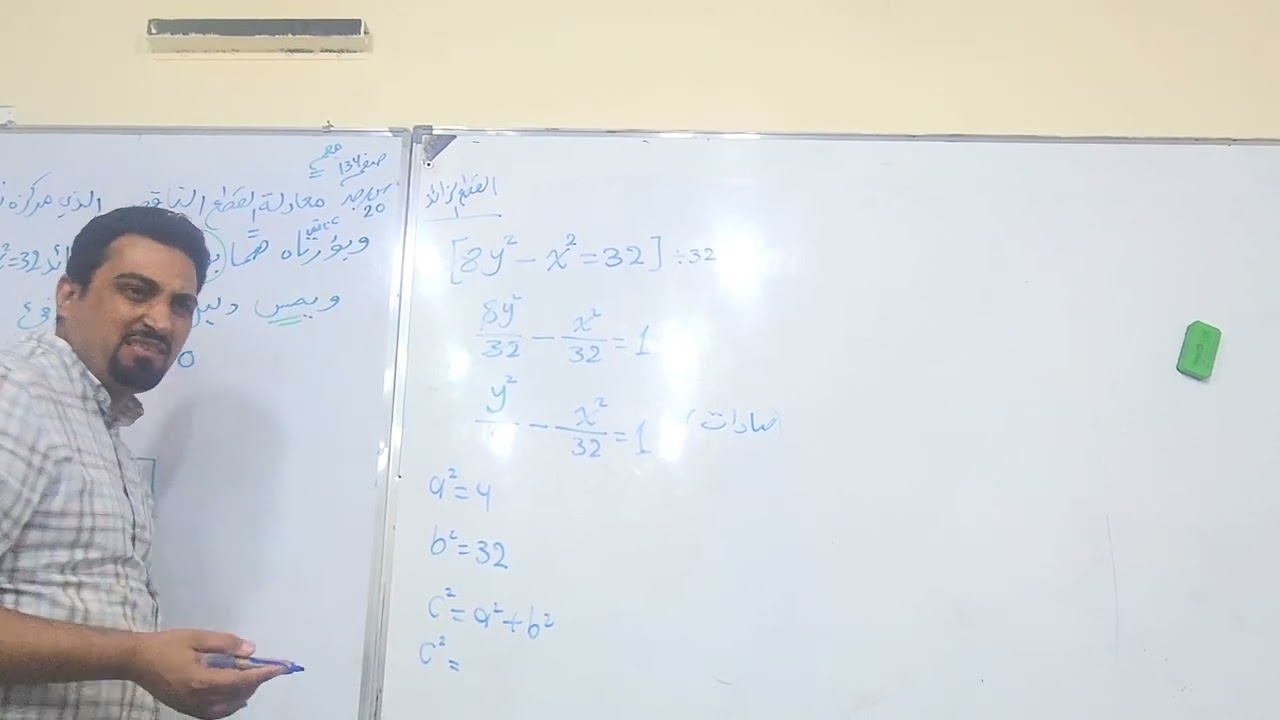 مهم
صفحة 134
معادلة القطع الناقص الذي مركزه
20
وبؤرتاه هما
=32
ويمس دليل
القطع الزائد
[8y² - x² = 32] ÷32
8y²/32 - x²/32 = 1
y²/ - x²/32 = 1 (صادات
a² = 4
b² = 32
c² = a² + b²
c² =